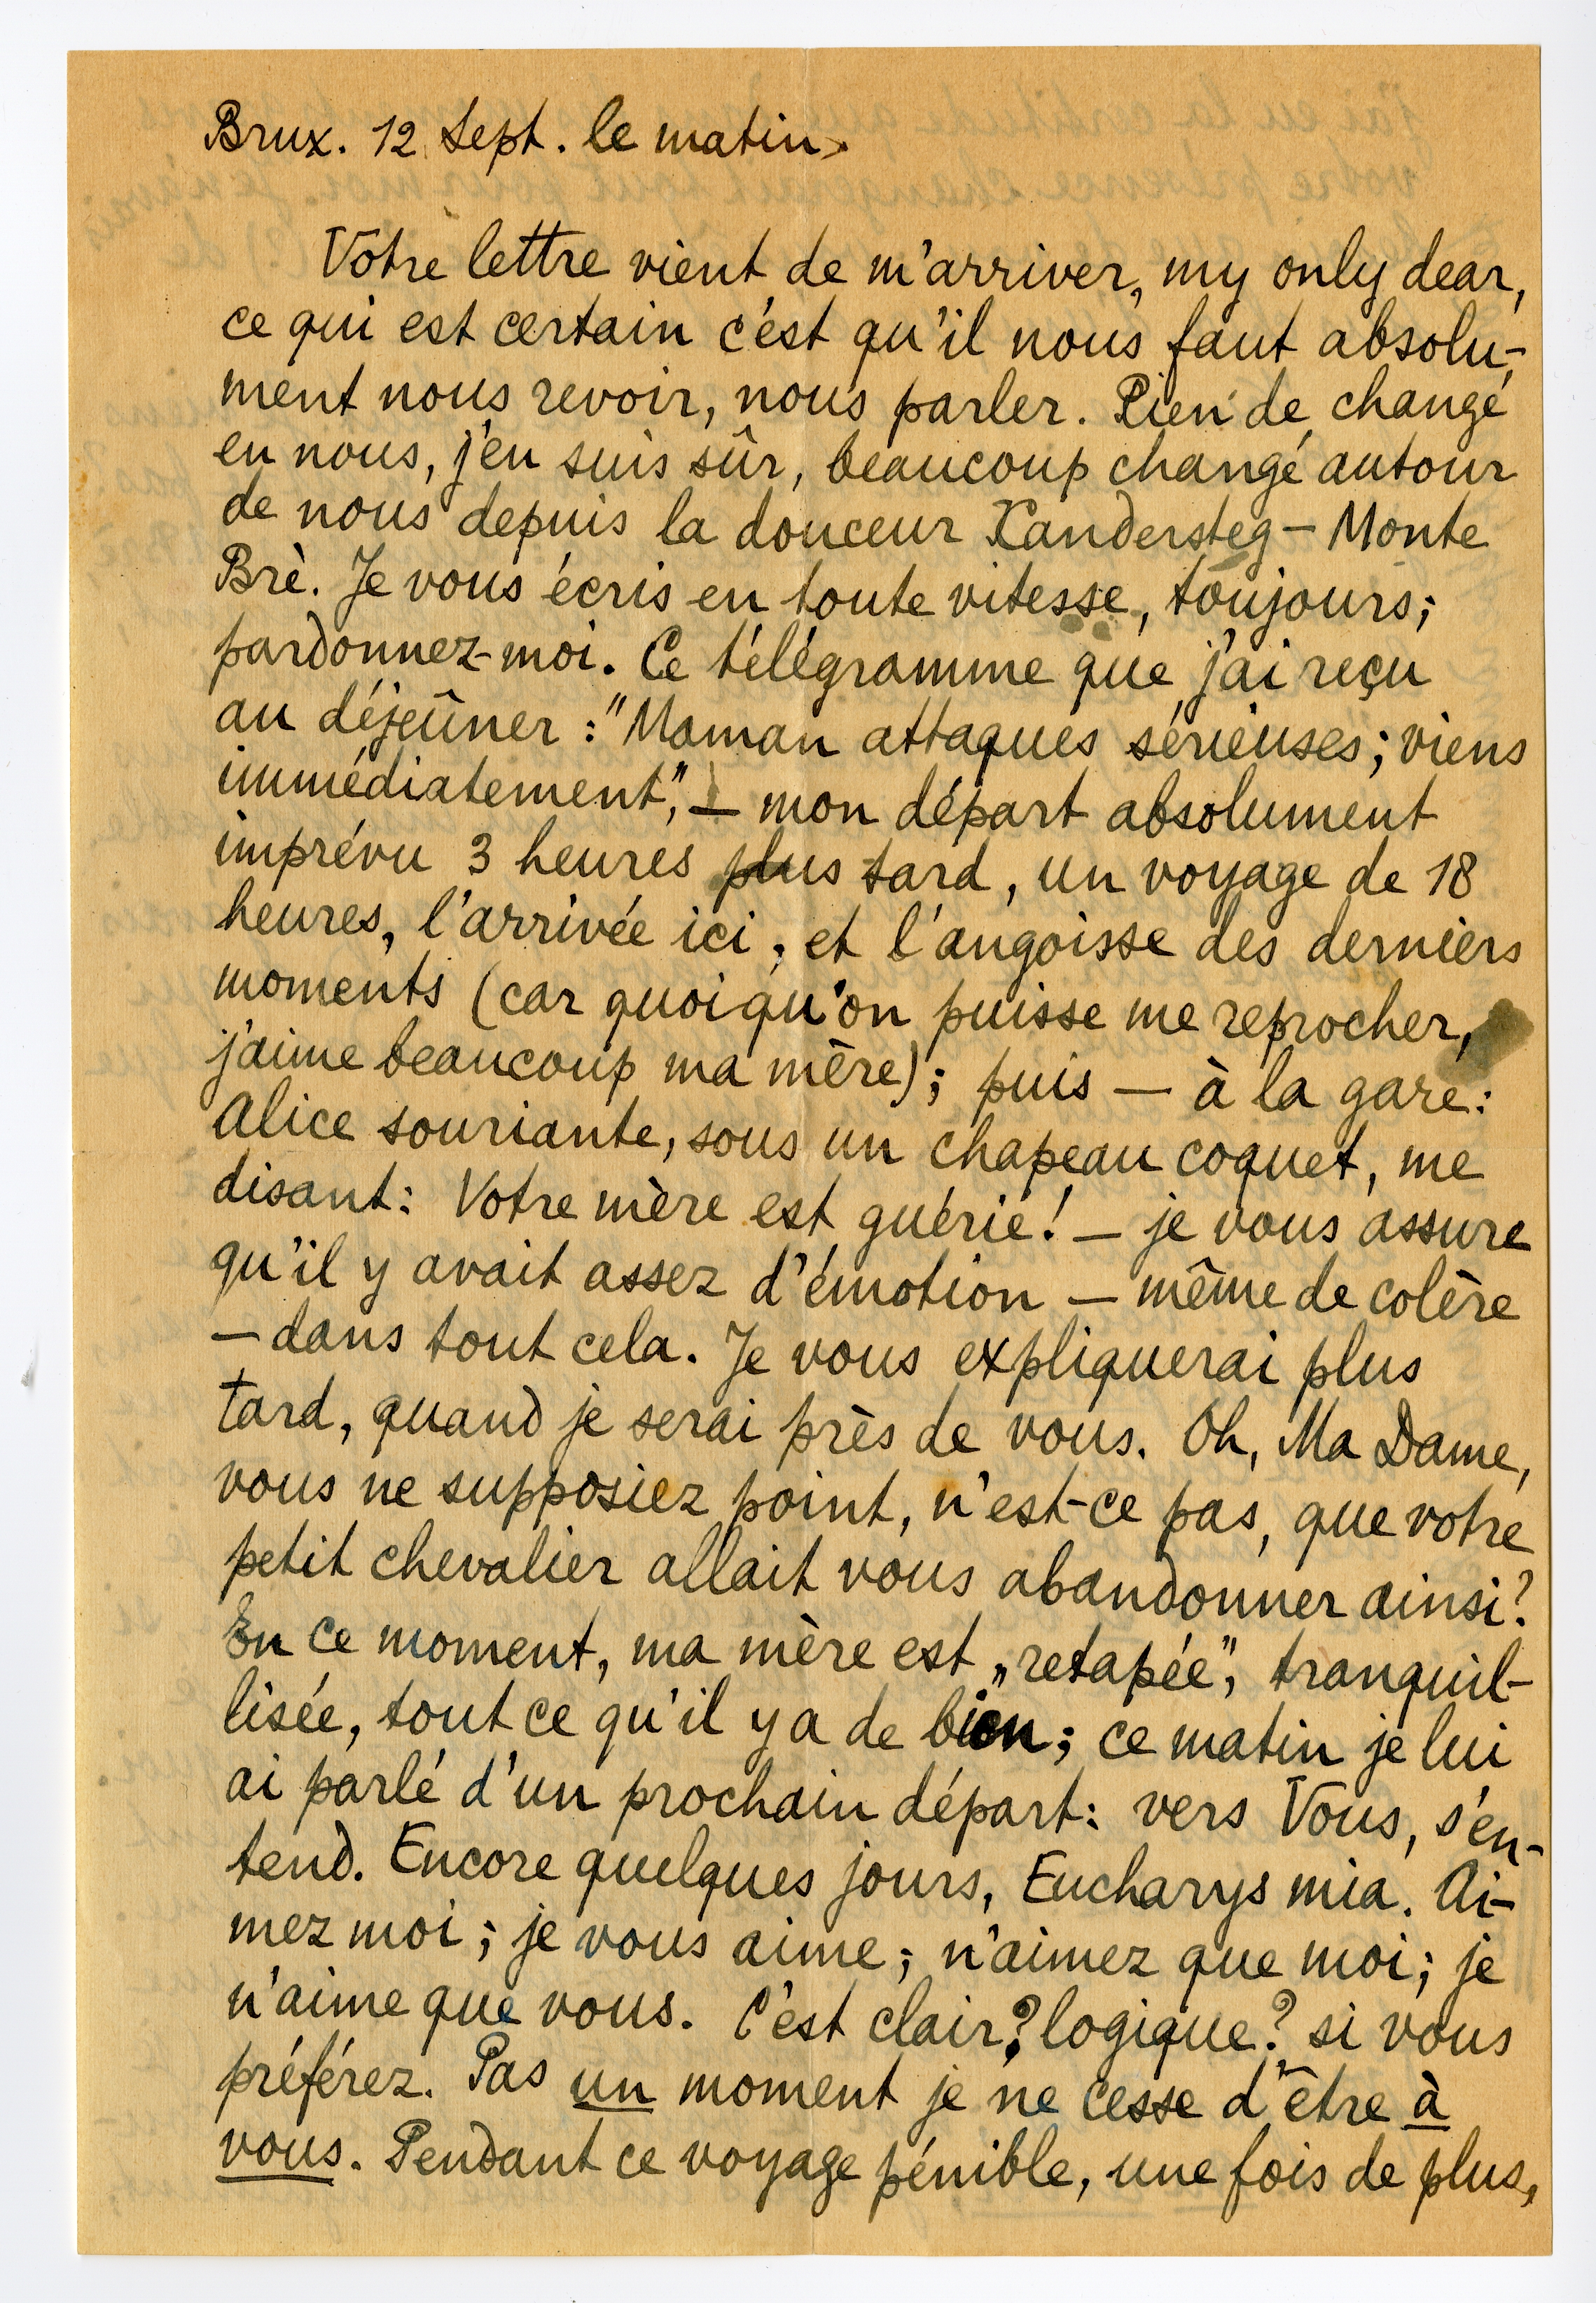 Brux. 12 Sept. le matin.
Votre lettre vient de m'arriver, my only dear,
ce qui est certain c'est qu'il nous faut absolu-
ment nous revoir, nous parler. Rien de changé
en nous, j'en suis sûr, beaucoup changé autour
de nous depuis la douceur Kandersteg – Monte
Brè. Je vous écris en toute vitesse, toujours;
pardonnez-moi. Ce télégramme que j'ai reçu
au déjeûner : "Maman attaques sérieuses; viens
immédiatement", – mon départ absolument
imprévu 3 heures plus tard, un voyage de 18
heures, l'arrivée ici, et l'angoisse des derniers
moments (car quoiqu'on puisse me reprocher,
j'aime beaucoup ma mère); puis — à la gare:
Alice souriante, sous un chapeau coquet, me
disant: Votre mère est guérie! – je vous assure
qu'il y avait assez d'émotion – même de colère
– dans tout cela. Je vous expliquerai plus
tard, quand je serai près de vous. Oh, Ma Dame,
vous ne supposiez point, n'est-ce pas, que votre
petit chevalier allait vous abandonner ainsi?
En ce moment, ma mère est „retapée", tranquil-
lisée, tout ce qu'il y a de bien; ce matin je lui
ai parlé d'un prochain départ: vers Vous, s'en-
tend. Encore quelques jours, Eucharys mia. Ai-
mez moi; je vous aime; n'aimez que moi; je
n'aime que vous. C'est clair? logique? si vous
préférez. Pas un moment je ne cesse d'être à
vous. Pendant ce voyage pénible, une fois de plus,